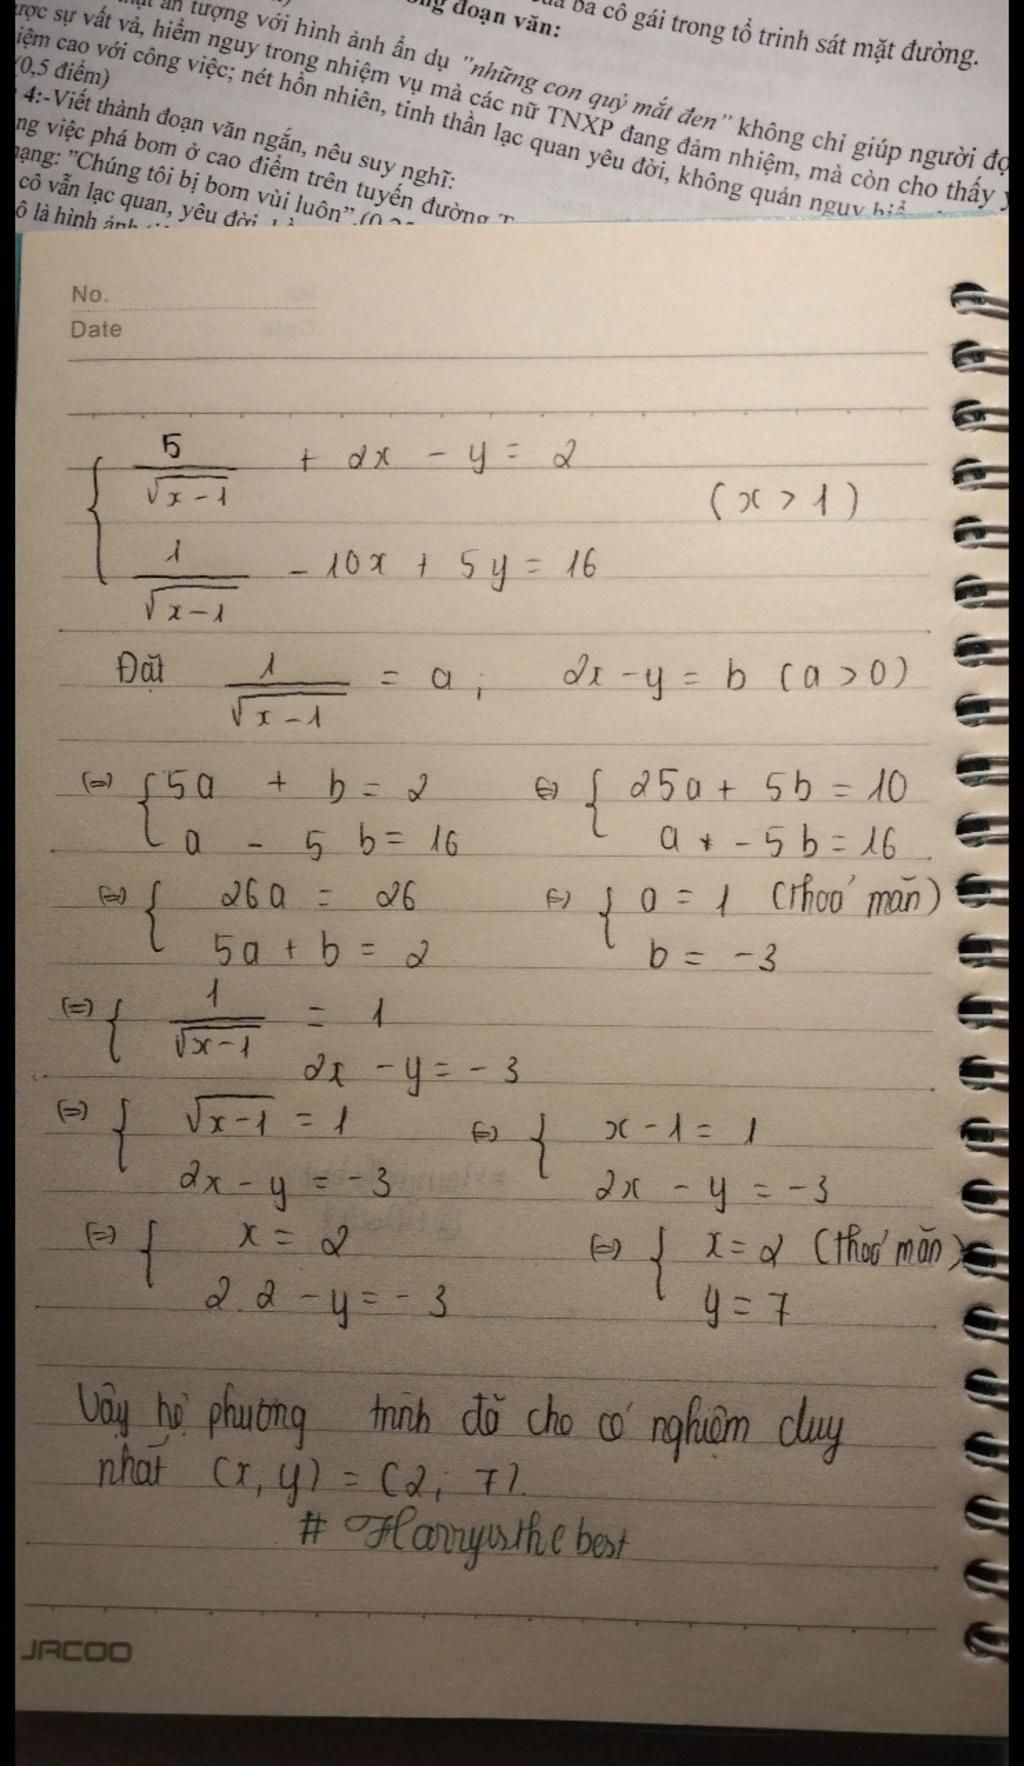 ủa ba cô gái trong tổ trinh sát mặt đường.
đoạn văn:
ấn tượng với hình ảnh ẩn dụ "những con quỷ mắt đen" không chỉ giúp người đọ
ược sự vất vả, hiểm nguy trong nhiệm vụ mà các nữ TNXP đang đảm nhiệm, mà còn cho thấy
iệm cao với công việc; nét hồn nhiên, tinh thần lạc quan yêu đời, không quản nguy hiể
(0,5 điểm)
4:-Viết thành đoạn văn ngắn, nêu suy nghĩ:
ng việc phá bom ở cao điểm trên tuyến đường T
nạng: "Chúng tôi bị bom vùi luôn"
cô vẫn lạc quan, yêu đời,
ô là hình ảnh
No.
Date
5/√x-1 + 2x - y = 2
(x > 1)
1/√x-1 - 10x + 5y = 16
Đặt 1/√x-1 = a; 2x - y = b (a > 0)
(=) { 5a + b = 2 (=) { 25a + 5b = 10
a - 5b = 16 a - 5b = 16
(=) { 26a = 26 (=) { a = 1 (thoả mãn)
5a + b = 2 b = -3
(=) { 1/√x-1 = 1
2x - y = -3
(=) { √x-1 = 1 (=) { x - 1 = 1
2x - y = -3 2x - y = -3
(=) { x = 2 (=) { x = 2 (thoả mãn)
2.2 - y = -3 y = 7
Vậy hệ phương trình đã cho có nghiệm duy
nhất (x, y) = (2; 7).
# Harryisthebest
JACOO